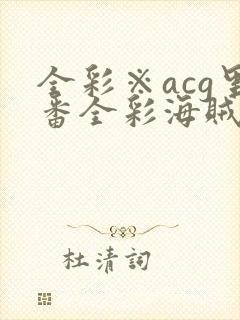 全彩※acg里
番全彩海贼
杜清詞